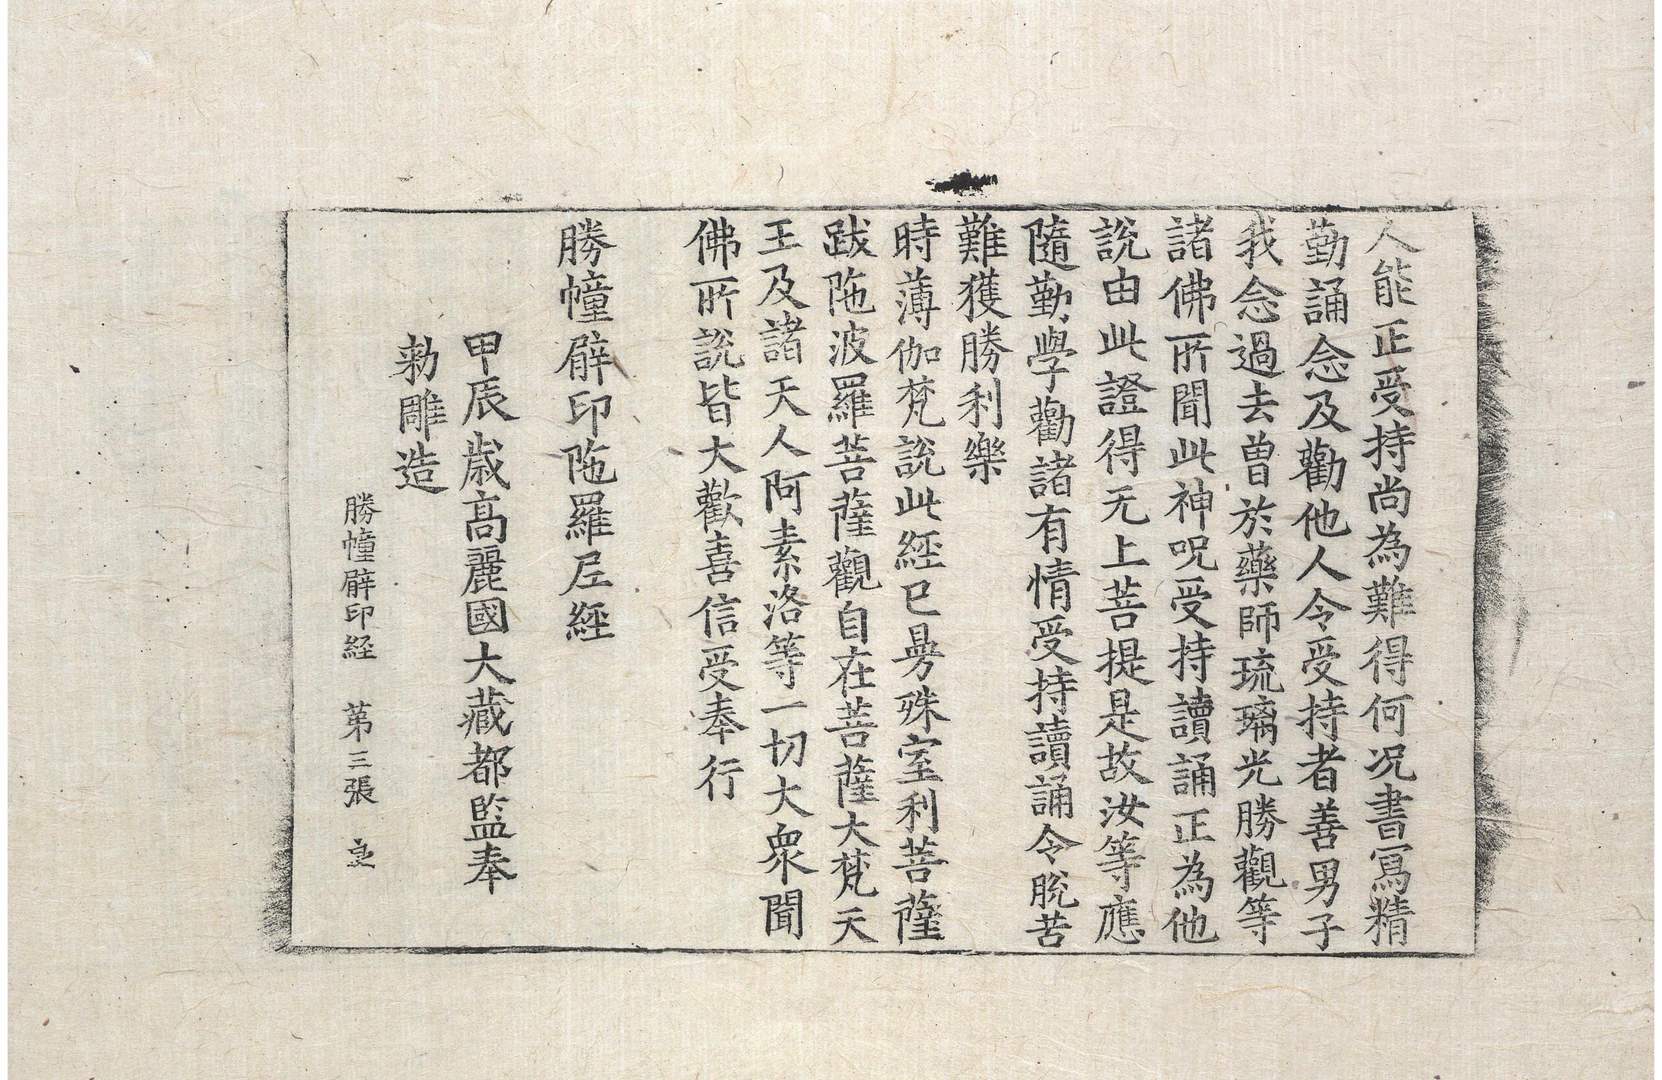 人能正受持尚為難得何况書寫精
勤誦念及勸他人令受持者善男子
我念過去曾於藥師琉璃光勝觀等
諸佛所聞此神呪受持讀誦正為他
說由此證得无上菩提是故汝等應
隨勤學勸諸有情受持讀誦令脫苦
難獲勝利樂
時薄伽梵說此經已曼殊室利菩薩
跋陁波羅菩薩觀自在菩薩大梵天
王及諸天人阿素洛等一切大衆聞
佛所說皆大歡喜信受奉行
勝幢臂印陁羅尼經
甲辰歲高麗國大藏都監奉
勅雕造
勝幢臂印經 第三張